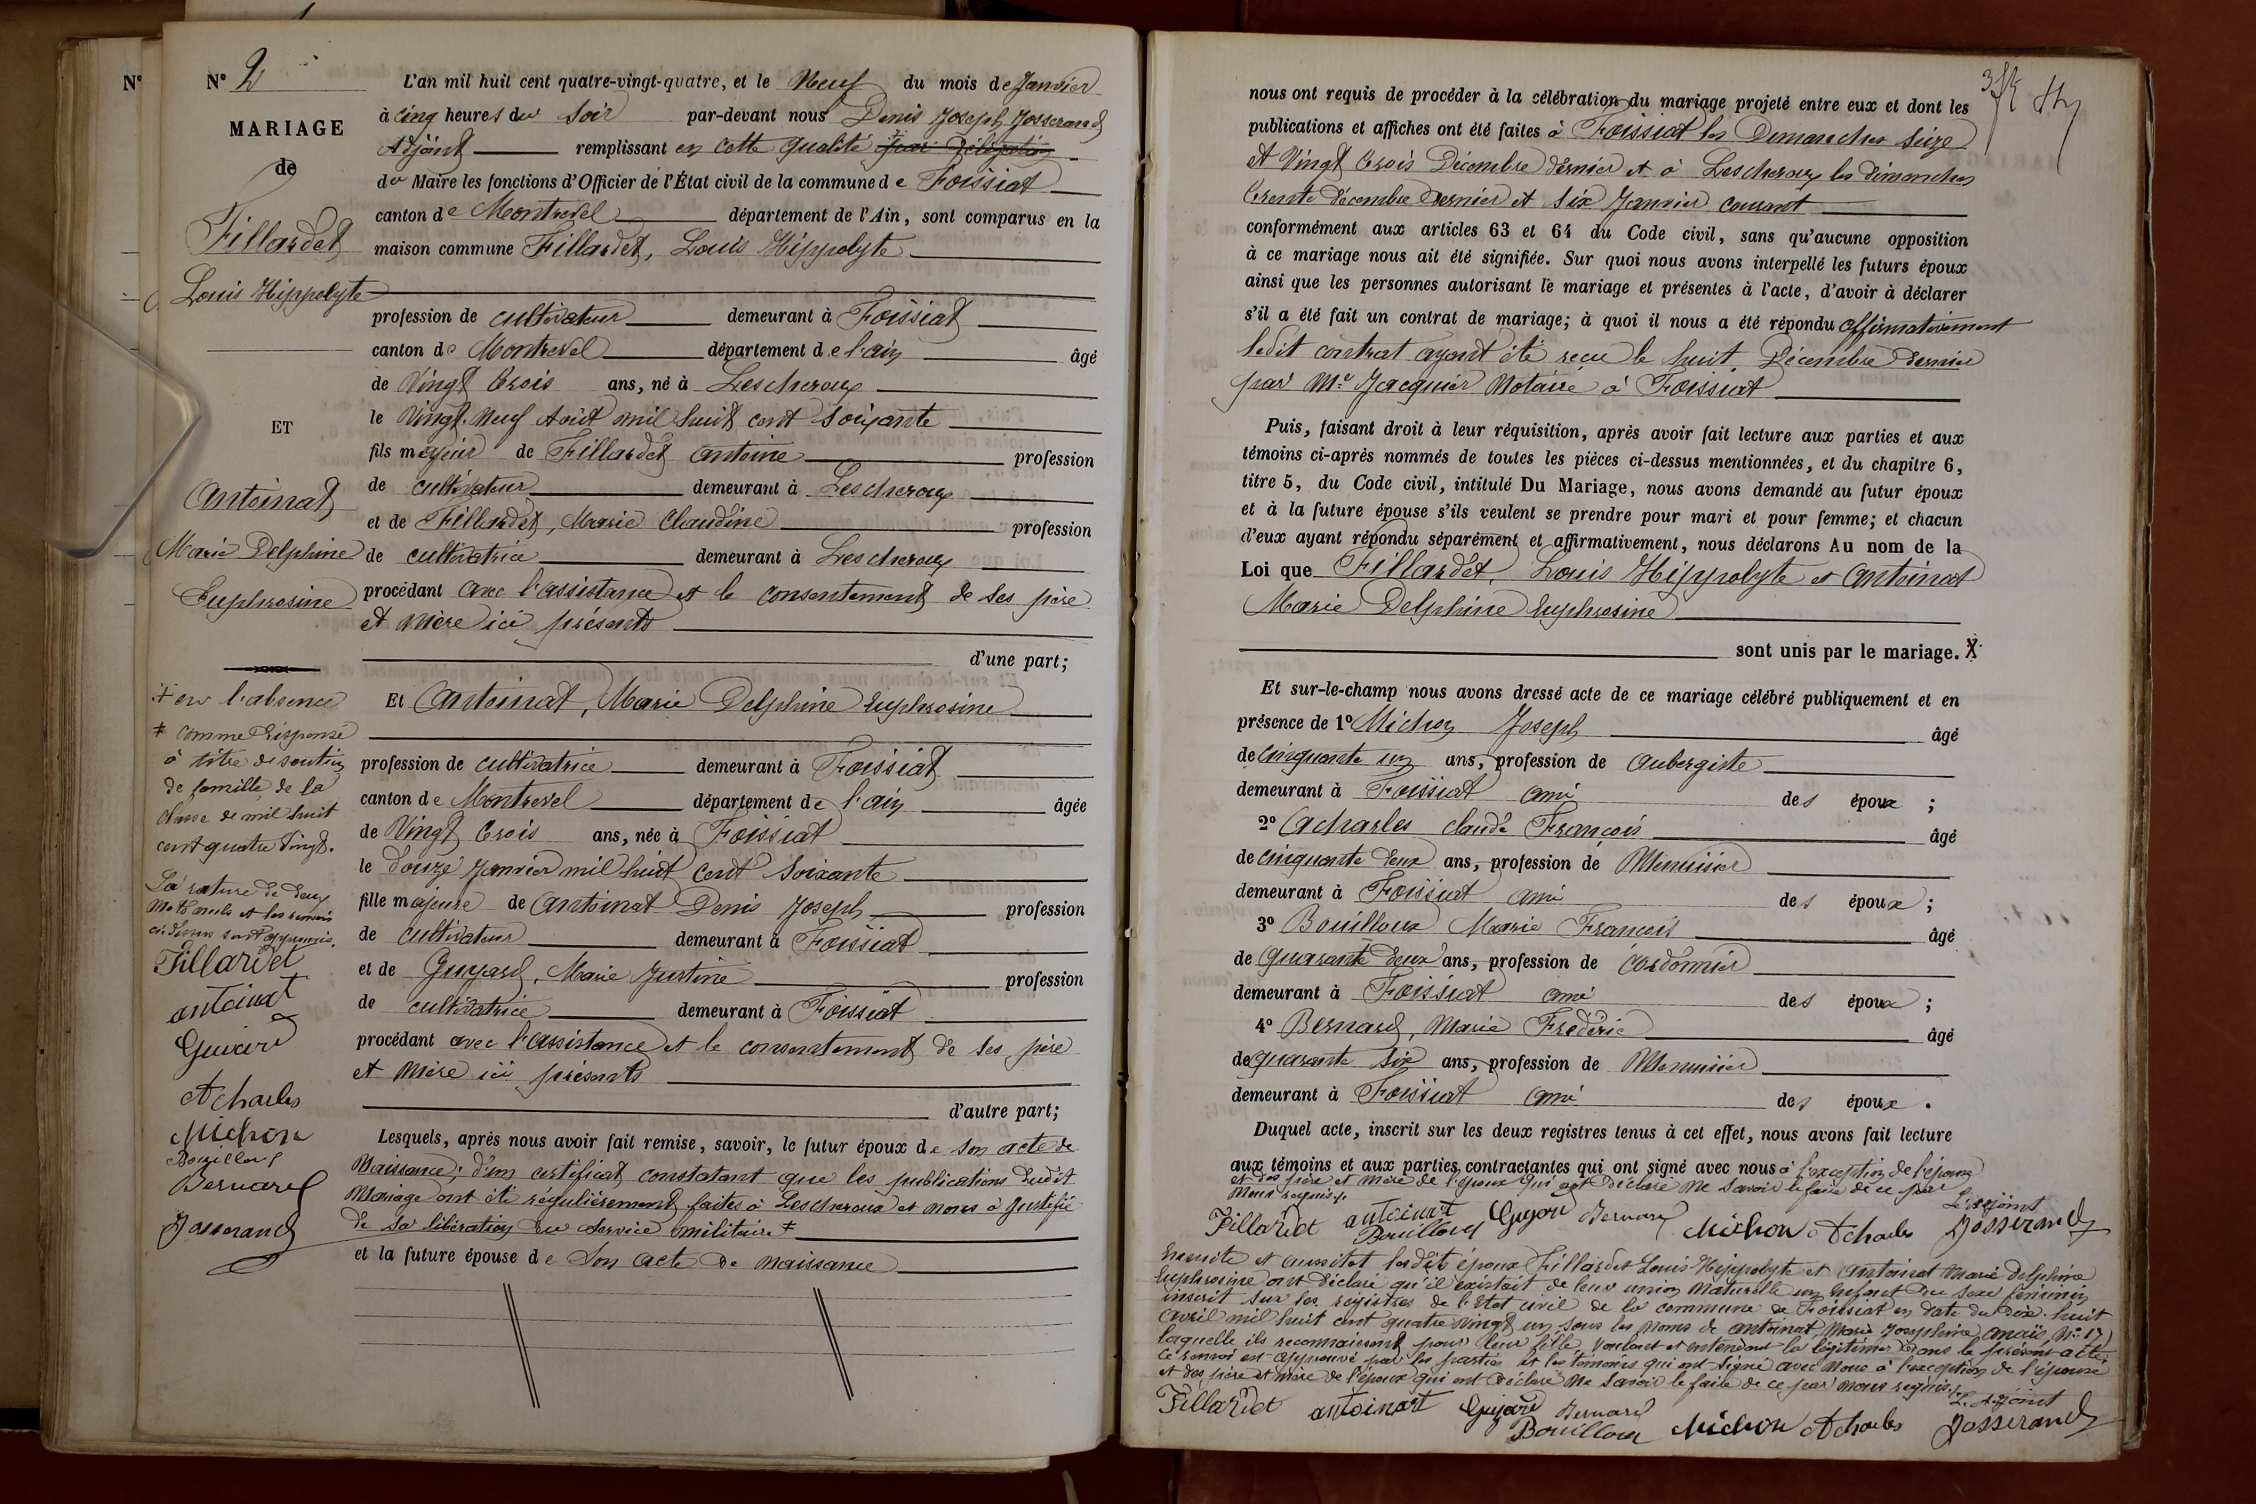 N° 2
MARIAGE
de
Fillardet
Louis Hippolyte
ET
Antoinat
Marie Delphine
Euphrosine
‡ en l'absence
‡ comme dispensé
à titre de soutien
de famille de la
classe de mil huit
cent quatre vingt.
La rature de deux
mots nuls et les renvois
ci-dessus sont approuvés.
Fillardet
antoinat
Guiard
Acharles
Michon
Bouilloux
Bernard
Josserand
L'an mil huit cent quatre-vingt-quatre, et le Neuf du mois de Janvier
à cinq heures du Soir par-devant nous Denis Joseph Josserand
Adjoint remplissant en cette qualité par délégation
du Maire les fonctions d'Officier de l'État civil de la commune de Foissiat
canton de Montrevel département de l'Ain, sont comparus en la
maison commune Fillardet, Louis Hippolyte
profession de cultivateur demeurant à Foissiat
canton de Montrevel département de l'ain âgé
de Vingt trois ans, né à Lescheroux
le Vingt-Neuf Août mil huit cent soixante
fils majeur de Fillardet antoine profession
de cultivateur demeurant à Lescheroux
et de Fillardet, Marie Claudine profession
de cultivatrice demeurant à Lescheroux
procédant avec l'assistance et le consentement de ses père
et mère ici présents
d'une part;
Et Antoinat, Marie Delphine Euphrosine
profession de cultivatrice demeurant à Foissiat
canton de Montrevel département de l'ain âgée
de Vingt trois ans, née à Foissiat
le douze Janvier mil huit cent soixante
fille majeure de Antoinat Denis Joseph profession
de cultivateur demeurant à Foissiat
et de Guyard, Marie Justine profession
de cultivatrice demeurant à Foissiat
procédant avec l'assistance et le consentement de ses père
et mère ici présents
d'autre part;
Lesquels, après nous avoir fait remise, savoir, le futur époux de son acte de
Naissance; d'un certificat constatant que les publications dudit
Mariage ont été régulièrement faites à Lescheroux et nous a justifié
de sa libération du service militaire ‡
et la future épouse de Son acte de naissance
nous ont requis de procéder à la célébration du mariage projeté entre eux et dont les
publications et affiches ont été faites à Foissiat les Dimanches Seize
et Vingt trois Décembre dernier et à Lescheroux les dimanches
trente décembre dernier et Six Janvier courant
conformément aux articles 63 et 64 du Code civil, sans qu'aucune opposition
à ce mariage nous ait été signifiée. Sur quoi nous avons interpellé les futurs époux
ainsi que les personnes autorisant le mariage et présentes à l'acte, d'avoir à déclarer
s'il a été fait un contrat de mariage; à quoi il nous a été répondu affirmativement
ledit contrat ayant été reçu le huit Décembre dernier
par Me Jacquier Notaire à Foissiat
Puis, faisant droit à leur réquisition, après avoir fait lecture aux parties et aux
témoins ci-après nommés de toutes les pièces ci-dessus mentionnées, et du chapitre 6,
titre 5, du Code civil, intitulé Du Mariage, nous avons demandé au futur époux
et à la future épouse s'ils veulent se prendre pour mari et pour femme; et chacun
d'eux ayant répondu séparément et affirmativement, nous déclarons Au nom de la
Loi que Fillardet, Louis Hippolyte et Antoinat
Marie Delphine Euphrosine
sont unis par le mariage. X
Et sur-le-champ nous avons dressé acte de ce mariage célébré publiquement et en
présence de 1° Michon Joseph âgé
de cinquante un ans, profession de aubergiste
demeurant à Foissiat ami des époux ;
2° Acharles claude François âgé
de cinquante deux ans, profession de Menuisier
demeurant à Foissiat ami des époux ;
3° Bouilloux Marie François âgé
de quarante deux ans, profession de cordonnier
demeurant à Foissiat ami des époux ;
4° Bernard, Marie Frédéric âgé
de quarante six ans, profession de Menuisier
demeurant à Foissiat ami des époux.
Duquel acte, inscrit sur les deux registres tenus à cet effet, nous avons fait lecture
aux témoins et aux parties contractantes qui ont signé avec nous à l'exception de l'épouse
et des père et mère de l'époux qui ont déclaré ne savoir le faire de ce par
nous requis.
L'adjoint
Fillardet antoinat Guyard Bernard Michon Acharles Josserand
Bouilloux
Ensuite et aussitôt lesdits époux Fillardet Louis Hippolyte et Antoinat Marie Delphine
Euphrosine ont déclaré qu'il existait de leur union naturelle un enfant du sexe féminin
inscrit sur les registres de l'Etat civil de la commune de Foissiat en date du dix-huit
avril mil huit cent quatre vingt un sous les noms de antoinat, Marie Joséphine anaïs, N° 17)
laquelle ils reconnaissent pour leur fille, voulant et entendant la légitimer dans le présent acte.
Ce renvoi est approuvé par les parties et les témoins qui ont signé avec nous à l'exception de l'épouse
et des père et mère de l'époux qui ont déclaré ne savoir le faire de ce par nous requis.
L'Adjoint
Fillardet antoinat Guyard Bernard
Bouilloux Michon Acharles Josserand